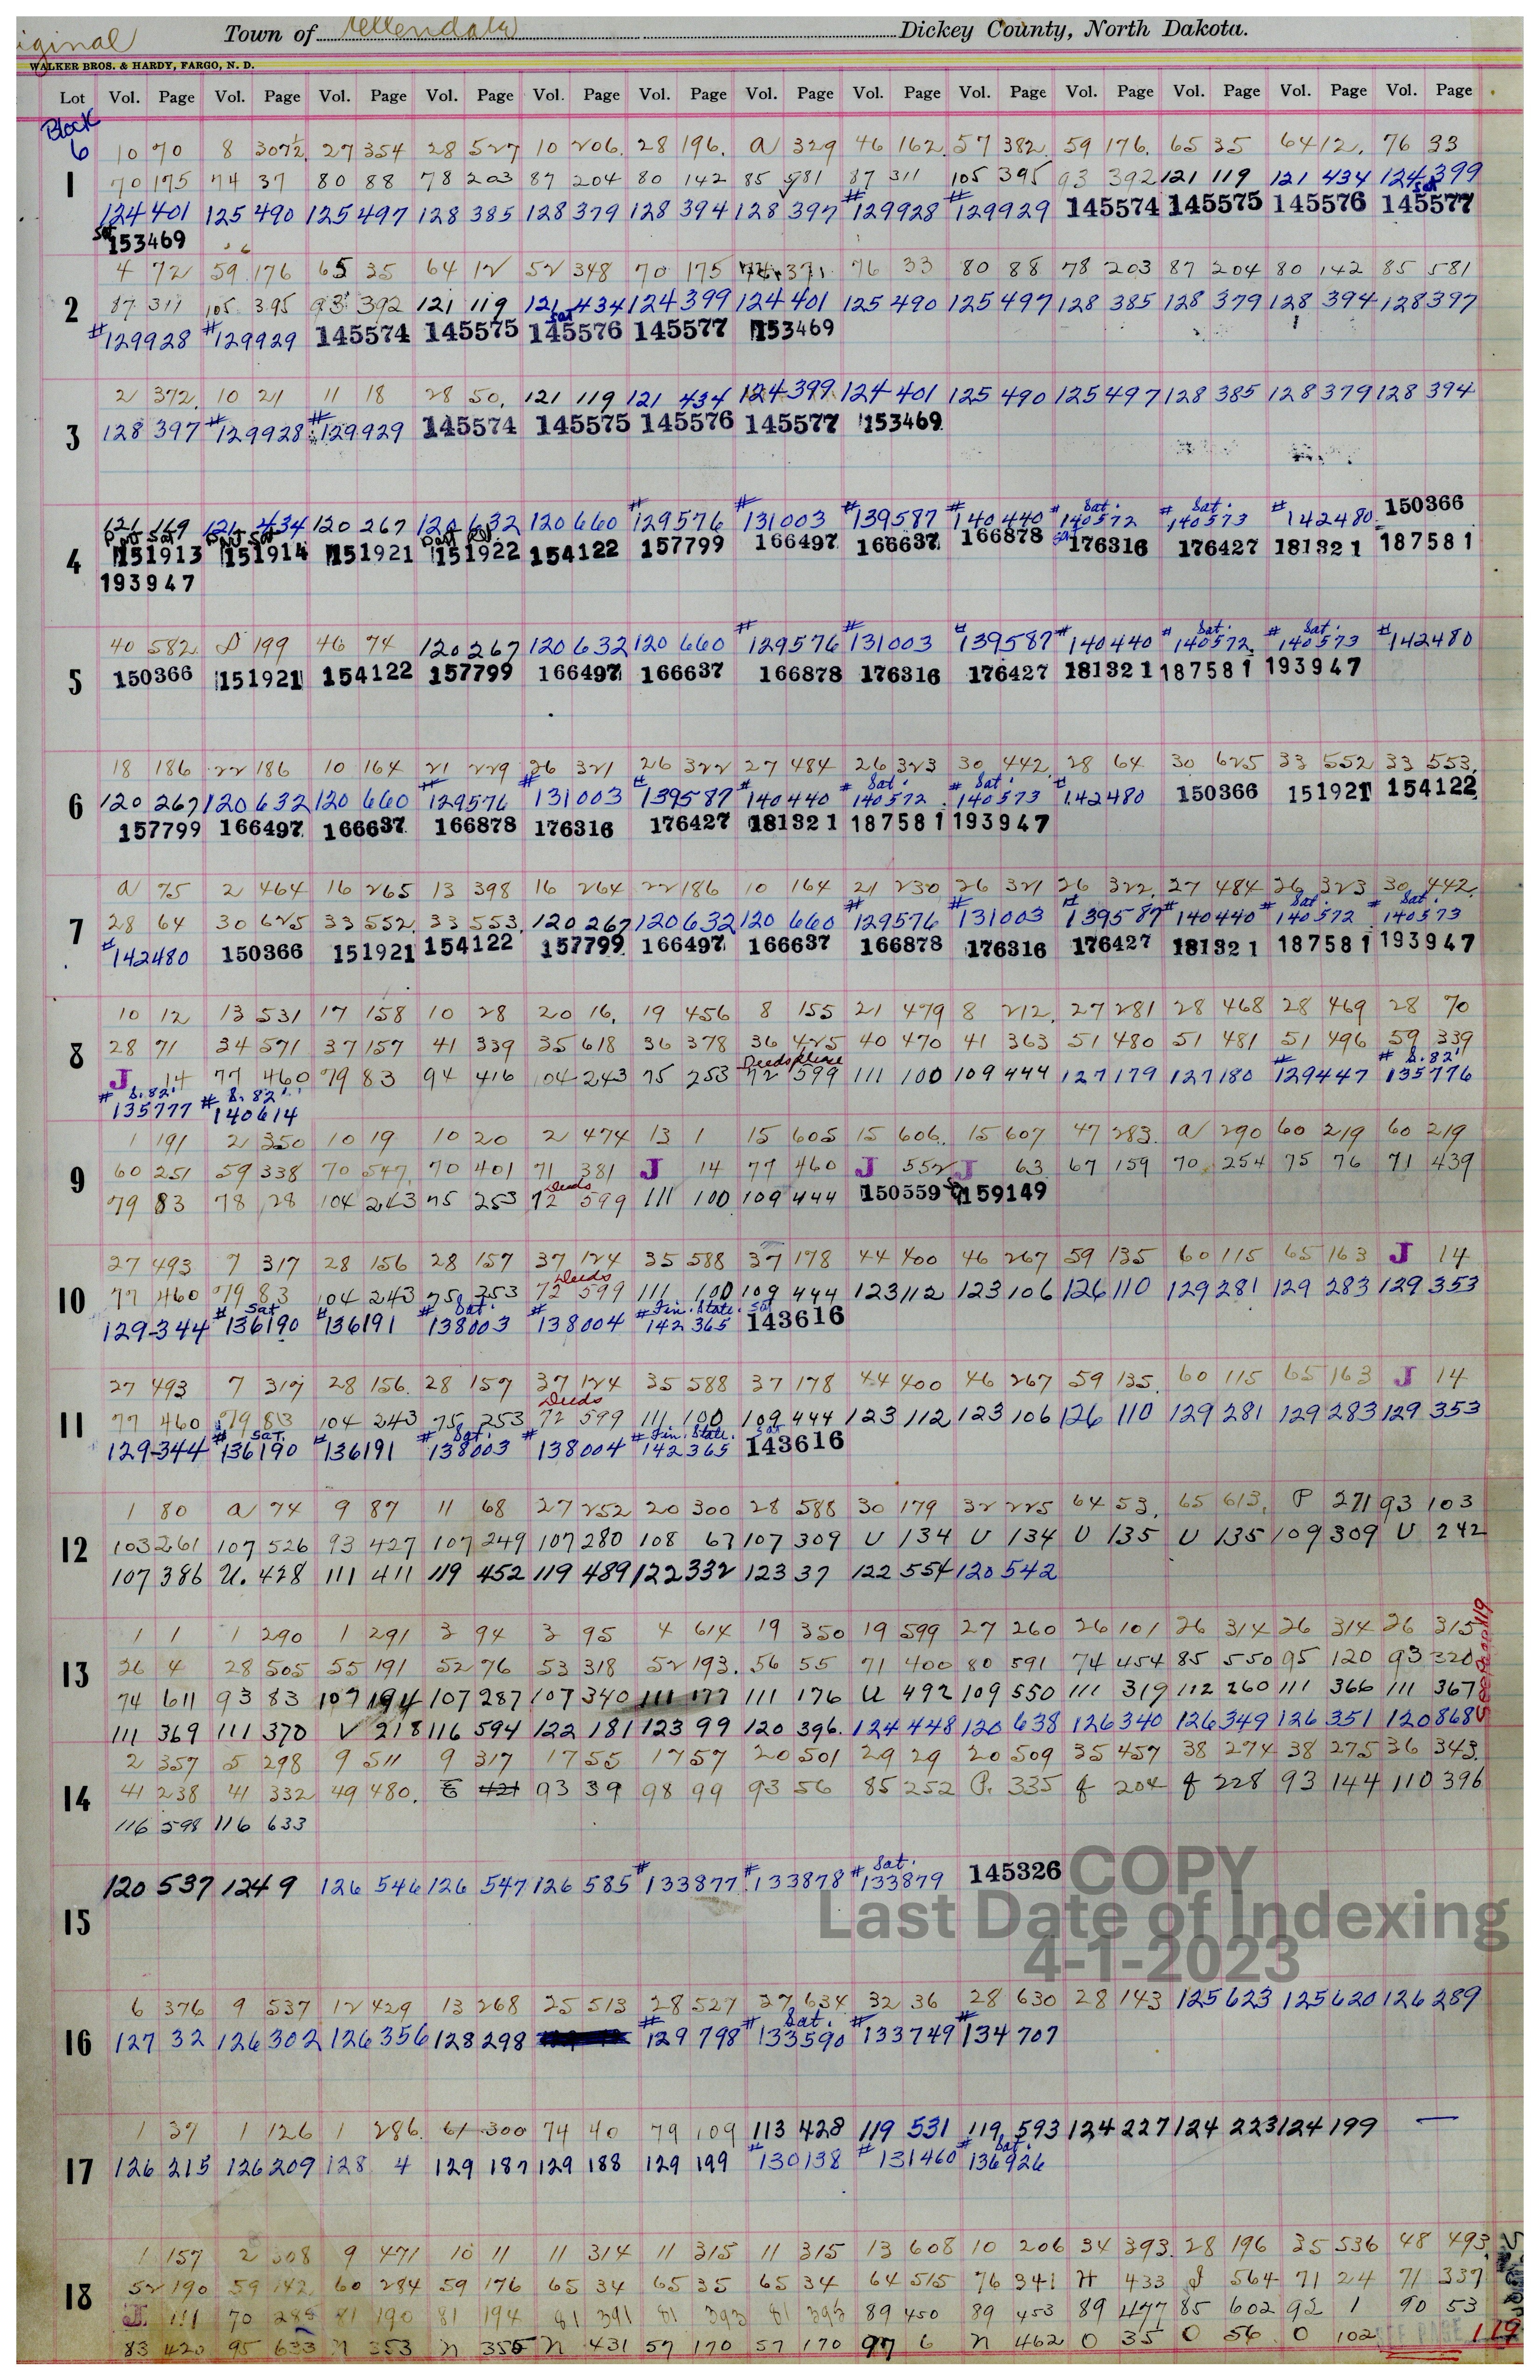 Original Town of Ellendale Dickey County, North Dakota.
WALKER BROS. & HARDY, FARGO, N. D.
Lot Vol. Page Vol. Page Vol. Page Vol. Page Vol. Page Vol. Page Vol. Page Vol. Page Vol. Page Vol. Page Vol. Page Vol. Page Vol. Page
Block
6 10 70 8 307½ 27 354 28 527 10 206. 28 196. a 329 46 162. 57 382. 59 176. 65 35 64 12. 76 33
1 70 175 74 37 80 88 78 203 87 204 80 142 85 581 87 311 105 395 93 392 121 119 121 434 124 399
Sat
124 401 125 490 125 497 128 385 128 379 128 394 128 397 #129928 #129929 145574 145575 145576 145577
Sat 153469
4 72 59 176 65 35 64 12 52 348 70 175 74 371 76 33 80 88 78 203 87 204 80 142 85 581
2 87 311 105 395 93 392 121 119 121 434 124 399 124 401 125 490 125 497 128 385 128 379 128 394 128 397
Sat
#129928 #129929 145574 145575 145576 145577 153469
2 372. 10 21 11 18 28 50. 121 119 121 434 124 399 124 401 125 490 125 497 128 385 128 379 128 394
3 128 397 #129928 #129929 145574 145575 145576 145577 153469
Sat. Sat. 150366
121 169 121 434 120 267 120 632 120 660 #129576 #131003 #139587 #140440 #140572 #140573 #142480
Part Sat Part Sat Part Sat
4 151913 151914 151921 151922 154122 157799 166497 166637 166878 176316 176427 181321 187581
193947
Sat. Sat.
40 582 D 199 46 74 120 267 120 632 120 660 #129576 #131003 #139587 #140440 #140572 #140573 #142480
5 150366 151921 154122 157799 166497 166637 166878 176316 176427 181321 187581 193947
18 186 22 186 10 164 21 229 26 321 26 322 27 484 26 323 30 442. 28 64 30 625 33 552 33 553.
Sat. Sat.
6 120 267 120 632 120 660 #129576 #131003 #139587 #140440 #140572 #140573 #142480 150366 151921 154122
157799 166497 166637 166878 176316 176427 181321 187581 193947
a 75 2 464 16 265 13 398 16 264 22 186 10 164 21 230 26 321 26 322. 27 484 26 323 30 442.
Sat. Sat.
7 28 64 30 625 33 552. 33 553. 120 267 120 632 120 660 #129576 #131003 #139587 #140440 #140572 #140573
#142480 150366 151921 154122 157799 166497 166637 166878 176316 176427 181321 187581 193947
10 12 13 531 17 158 10 28 20 16. 19 456 8 155 21 479 8 212. 27 281 28 468 28 469 28 70
8 28 71 34 571 37 157 41 339 35 618 36 378 36 425 40 470 41 363 51 480 51 481 51 496 59 339
Deeds S. 82'
J 14 77 460 79 83 94 416 104 243 75 253 72 599 111 100 109 444 127 179 127 180 #129447 #135776
S. 82' S. 82'
#135777 #140614
1 191 2 350 10 19 10 20 2 474 13 1 15 605 15 606. 15 607 47 283. a 290 60 219 60 219
9 60 251 59 338 70 547. 70 401 71 381 J 14 77 460 J 552 J 63 67 159 70 254 75 76 71 439
Deeds
79 83 78 28 104 243 75 253 72 599 111 100 109 444 150559 159149
27 493 7 317 28 156 28 157 37 124 35 588 37 178 44 400 46 267 59 135 60 115 65 163 J 14
Deeds
10 77 460 79 83 104 243 75 253 72 599 111 100 109 444 123 112 123 106 126 110 129 281 129 283 129 353
Sat Sat. Fin. State. Sat
129-344 #136190 #136191 #138003 #138004 #142365 143616
27 493 7 317 28 156. 28 157 37 124 35 588 37 178 44 400 46 267 59 135. 60 115 65 163 J 14
Deeds
11 77 460 79 83 104 243 75 253 72 599 111 100 109 444 123 112 123 106 126 110 129 281 129 283 129 353
Sat. Sat. Fin. State. Sat
129-344 #136190 #136191 #138003 #138004 #142365 143616
1 80 a 74 9 87 11 68 27 252 20 300 28 588 30 179 32 225 64 53. 65 613. P 271 93 103
12 103 261 107 526 93 427 107 249 107 280 108 67 107 309 U 134 U 134 U 135 U 135 109 309 U 242
107 386 U. 428 111 411 119 452 119 489 122 332 123 37 122 554 120 542
1 1 1 290 1 291 3 94 3 95 4 614 19 350 19 599 27 260 26 101 26 314 26 314 26 315
13 26 4 28 505 55 191 52 76 53 318 52 193. 56 55 71 400 80 591 74 454 85 550 95 120 93 320
74 611 93 83 107 194 107 287 107 340 111 177 111 176 U 492 109 550 111 319 112 260 111 366 111 367
111 369 111 370 V 218 116 594 122 181 123 99 120 396. 124 448 120 638 126 340 126 349 126 351 120 868
See Page 119
2 357 5 298 9 511 9 317 17 55 17 57 20 501 29 29 20 509 35 457 38 274 38 275 36 343.
14 41 238 41 332 49 480. E 421 93 39 98 99 93 56 85 252 P. 335 f 204 f 228 93 144 110 396
116 598 116 633
Sat.
120 537 124 9 126 546 126 547 126 585 #133877 #133878 #133879 145326
15
COPY
Last Date of Indexing
4-1-2023
6 376 9 537 12 429 13 268 25 513 28 527 27 634 32 36 28 630 28 143 125 623 125 620 126 289
Sat.
16 127 32 126 302 126 356 128 298 #129 798 #133590 #133749 #134707
1 37 1 126 1 286. 61 300 74 40 79 109 113 428 119 531 119 593 124 227 124 223 124 199 —
Sat.
17 126 215 126 209 128 4 129 187 129 188 129 199 #130138 #131460 #136926
1 157 2 308 9 471 10 11 11 314 11 315 11 315 13 608 10 206 34 393. 28 196 35 536 48 493.
18 52 190 59 142 60 284 59 176 65 34 65 35 65 34 64 515 76 341 H 433 J 564 71 24 71 337
J. 111 70 288 81 190 81 194 81 391 81 393 81 393 89 450 89 453 89 477 85 602 92 1 90 53
83 420 95 633 N 353 N 355 N 431 57 170 57 170 97 6 N 462 O 35 O 56 O 102 SEE PAGE 119